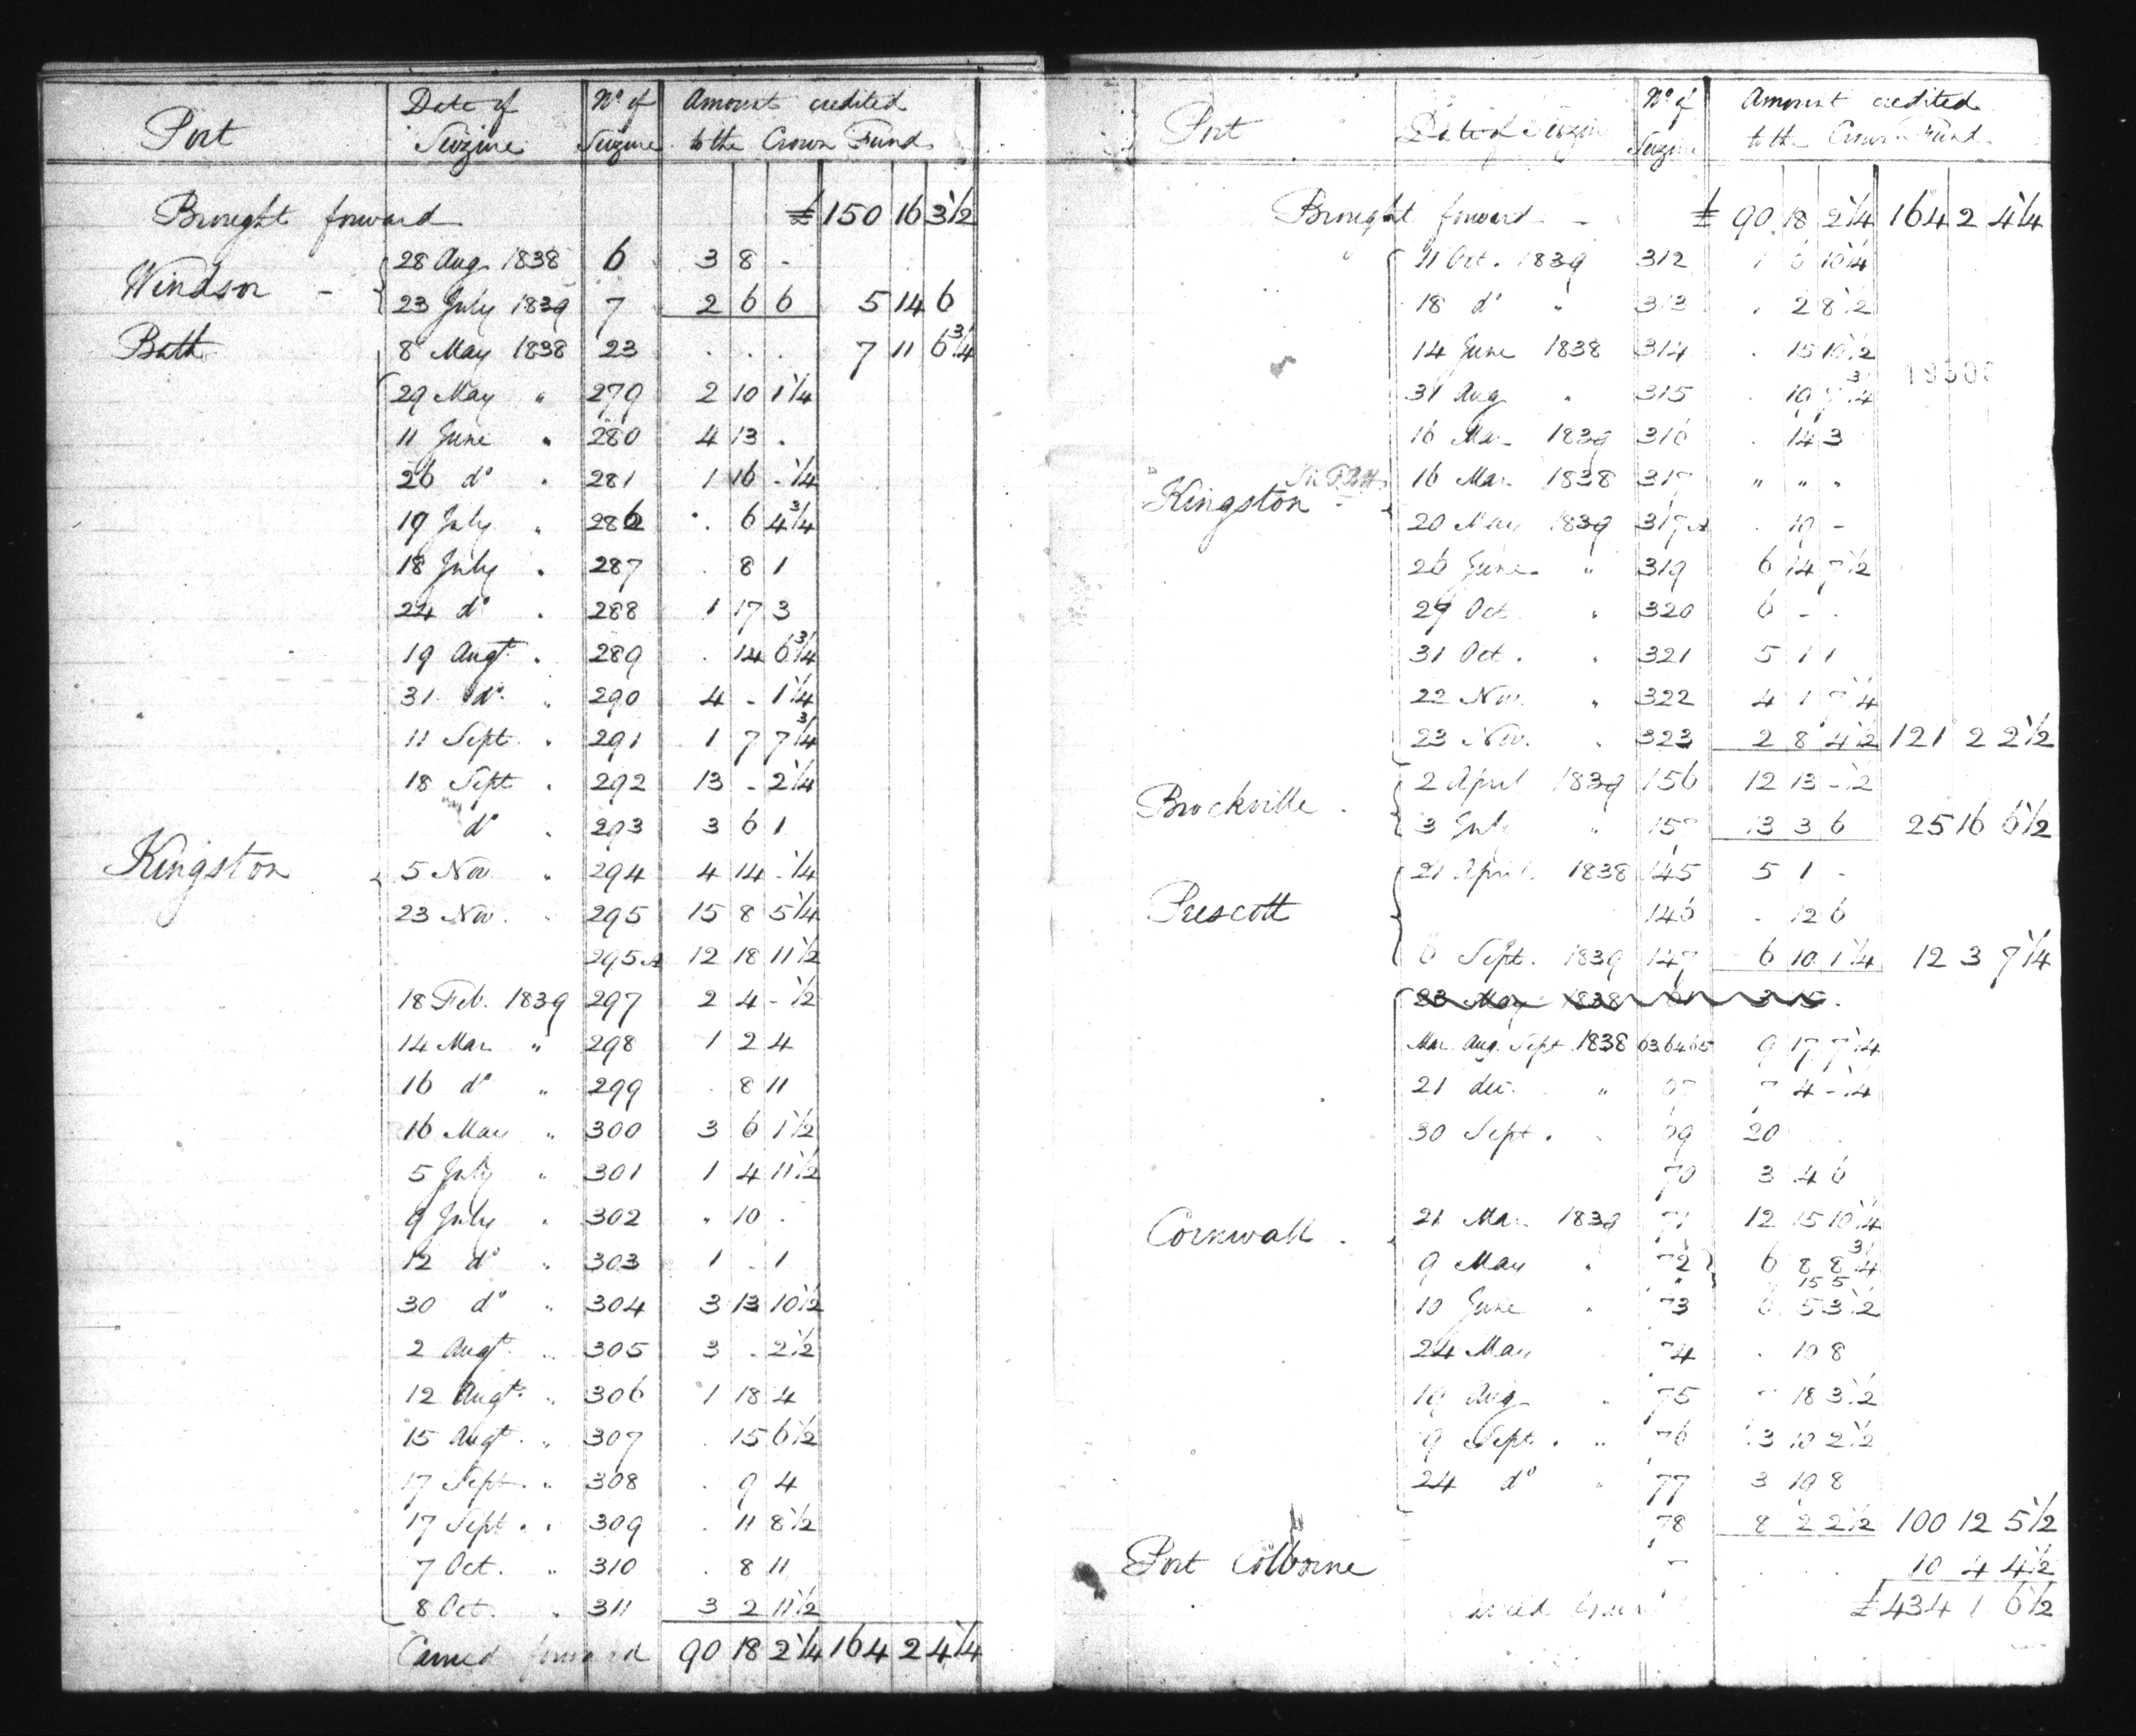 Port Date of Seizure No of Seizure Amount credited to the Crown Fund
Brought forward £ 150 16 3 1/2
Windsor - 28 Aug 1838 6 3 8 -
23 July 1839 7 2 6 6 5 14 6
Bath 8 May 1838 23 . . . 7 11 6 3/4
29 May " 279 2 10 1 1/4
11 June " 280 4 13 .
26 do " 281 1 16 - 1/4
19 July " 286 . 6 4 3/4
18 July " 287 . 8 1
24 do " 288 1 17 3
19 Augt " 289 . 14 6 3/4
31 do " 290 4 - 1 1/4
11 Sept " 291 1 7 7 3/4
18 Sept " 292 13 - 2 1/4
do " 293 3 6 1
Kingston 5 Nov " 294 4 14 - 1/4
23 Nov. " 295 15 8 5 1/4
295A 12 18 11 1/2
18 Feb. 1839 297 2 4 - 1/2
14 Mar " 298 1 2 4
16 do " 299 . 8 11
16 May " 300 3 6 1 1/2
5 July " 301 1 4 11 1/2
9 July " 302 " 10 .
12 do " 303 1 - 1
30 do " 304 3 13 10 1/2
2 Augt " 305 3 . 2 1/2
12 Augt " 306 1 18 4
15 Augt " 307 . 15 6 1/2
17 Sept " 308 . 9 4
17 Sept " 309 . 11 8 1/2
7 Oct. " 310 . 8 11
8 Oct. " 311 3 2 11 1/2
Carried forward 90 18 2 1/4 164 2 4 1/4
Port Date of Seizure No of Seizure Amount credited to the Crown Fund
Brought forward - £ 90 18 2 1/4 164 2 4 1/4
Oct. 1839 312 1 10 1/4
18 do " 313 . 2 8 1/2
14 June 1838 314 . 15 10 1/2
31 Aug " 315 . 10 3/4
16 Mar 1839 316 . 14 3
Kingston - 16 Mar 1838 317 " " "
20 May 1839 317A . 10 -
26 June " 319 6 14 7 1/2
29 Oct " 320 6 - .
31 Oct. " 321 5 1 1
22 Nov. " 322 4 1 7 1/4
23 Nov. " 323 2 8 4 1/2 121 2 2 1/2
Brockville . 2 April 1839 156 12 13 - 1/2
3 July " 157 13 3 6 25 16 6 1/2
Prescott 21 April 1838 145 5 1 -
146 . 12 6
6 Sept. 1839 147 6 10 1 1/4 12 3 7 1/4
23 May 1838 3 15 .
Mar Aug. Sept 1838 63 64 65 9 17 7 1/4
21 dec. " 67 7 4 - 1/4
30 Sept. " 69 20
70 3 4 6
Cornwall . 21 Mar 1839 71 12 15 10 1/4
9 May " 72 6 8 8 3/4
15 5
10 June " 73 5 3 1/2
24 May 74 . 10 8
19 Aug " 75 18 3 1/2
9 Sept. " 76 10 2 1/2
24 do " 77 3 19 8
78 8 2 2 1/2 100 12 5 1/2
Port Colborne 10 4 4 1/2
£ 434 1 6 1/2